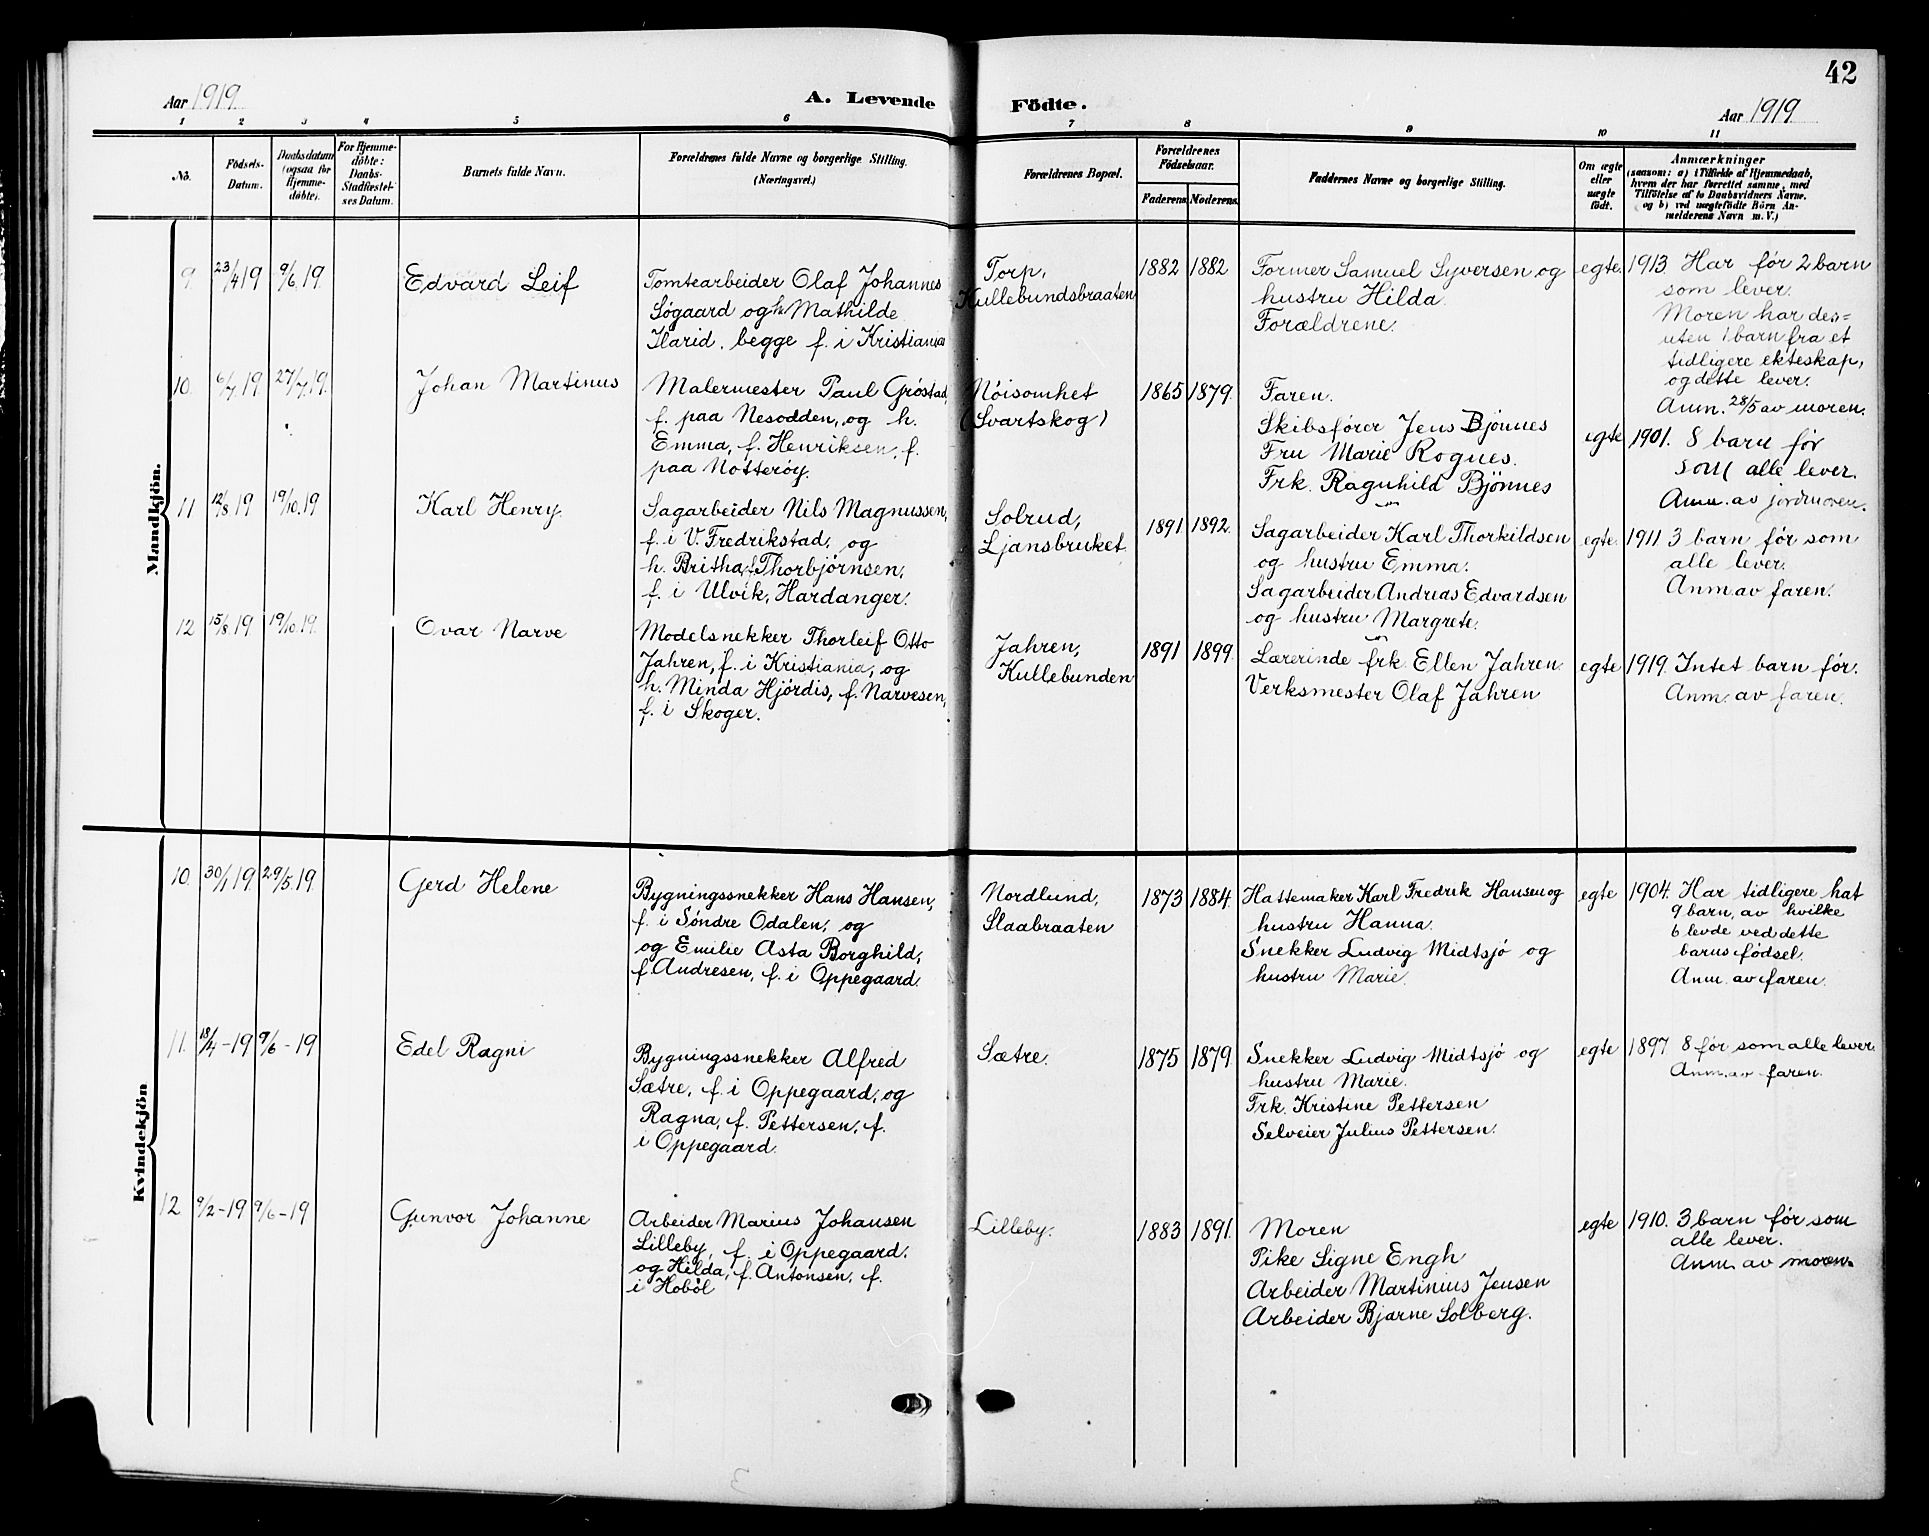 42
Aar 1919
A. Levende Födte.
Aar 1919
1 2 3 4 5 6 7 8 9 10 11
No.
Födsels-
Datum.
Daabsdatum
(ogsaa for
Hjemme-
döbte).
For Hjemme-
döbte:
Daabs-
Stadfæstel-
ses Datum.
Barnets fulde Navn.
Forældrenes fulde Navne og borgerlige Stilling.
(Næringsvei.)
Forældrenes Bopæl.
Forældrenes
Födselsaar.
Faderens. Moderens.
Faddernes Navne og borgerlige Stilling.
Om ægte
eller
uægte
födt.
Anmærkninger
(saasom: a) i Tilfælde af Hjemmedaab,
hvem der har forrettet samme, med
Tilföielse af to Daabsvidners Navne.
og b) ved uægtefödte Börn An-
melderens Navn m. V.)
Mandkjön.
9. 23/4 19 9/6. 19. Edvard Leif
Tomtearbeider Olaf Johannes
Søgaard og h. Mathilde
begge f. i Kristiania
Torp,
Kullebundsbraaten
1882 1882
Former Samuel Syversen og
hustru Hilda.
Forældrene.
egte.
1913. Har før 2 barn
som lever.
Moren har des=
uten 1 barn fra et
tidligere ekteskap,
og dette lever.
Anm. 28/5 av moren.
10. 6/7. 19. 27/7. 19. Johan Martinus
Malermester Paul Grøstad,
f. paa Nesodden, og h.
Emma, f. Henriksen, f.
paa Nøtterøy.
Nöisomhet
(Svartskog)
1865 1879.
Faren.
Skibsfører Jens Bjønnes
Fru Marie Rognes.
Frk. Ragnhild Bjønnes
egte
1901. 8 barn før
som alle lever.
Anm. av jordmoren.
11 12/8 19 19/10. 19 Karl Henry.
Sagarbeider Nils Magnussen,
f. i V. Fredrikstad, og
h. Britha, f. Thorbjørnsen,
f. i Ulvik, Hardanger.
Solrud,
Ljansbruket
1891 1892.
Sagarbeider Karl Thorkildsen
og hustru Emma.
Sagarbeider Andreas Edvardsen
og hustru Margrete.
egte.
1911 3 barn før som
alle lever.
Anm. av faren.
12 15/8. 19. 19/10. 19. Ovar Narve
Modelsnekker Thorleif Otto
Jahren, f. i Kristiania, og
h. Minda Hjördis, f. Narvesen,
f. i Skoger.
Jahren,
Kullebunden
1891 1899.
Lærerinde frk. Ellen Jahren
Verksmester Olaf Jahren
egte
1919. Intet barn før.
Anm. av faren.
Kvindekjön
10. 30/1 19. 29/5. 19. Gerd Helene
Bygningssnekker Hans Hansen,
f. i Söndre Odalen, og
og Emilie Asta Borghild,
f. Andresen, f. i Oppegaard.
Nordlund,
Slaabraaten
1873 1884.
Hattemaker Karl Fredrik Hansen og
hustru Hanna.
Snekker Ludvig Midtsjö og
hustru Marie.
egte
1904. Har tidligere hat
9 barn, av hvilke
6 levde ved dette
barns fødsel.
Anm. av faren.
11. 18/4 - 19 9/6 - 19 Edel Ragni
Bygningssnekker Alfred
Sætre, f. i Oppegaard, og
Ragna, f. Pettersen, f.
i Oppegaard.
Sætre.
1875 1879
Snekker Ludvig Midtsjö og
hustru Marie.
Frk. Kristine Pettersen
Selveier Julius Pettersen.
egte
1897. 8 før som alle lever.
Anm. av faren.
12 9/2 - 19 9/6 - 19 Gunvor Johanne
Arbeider Marius Johansen
Lilleby, f. i Oppegaard.
og Hilda, f. Antonsen, f.
i Hobøl
Lilleby.
1883 1891.
Moren
Pike Signe Engh
Arbeider Martinius Jensen
Arbeider Bjarne Solberg.
egte
1910. 3 barn før som
alle lever.
Anm. av moren.